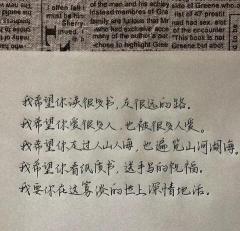 often fall i
must be his
Sherry
invest
of the man and his achiev
instead members of Gre
family are furious that Mr
who had exclusive acce
many of the author's pap
chose to highlight Gree
side of Greene who
list of 47 prostit
had had sex
of the encounter
"This book is not
Greene but abot
我希望你读很多书,走很远的路。
我希望你爱很多人,也被很多人爱。
我希望你走过人山人海,也遍览山河湖海。
我希望你看纸质书,送手写的祝福。
我要你在这寡淡的世上深情地活。